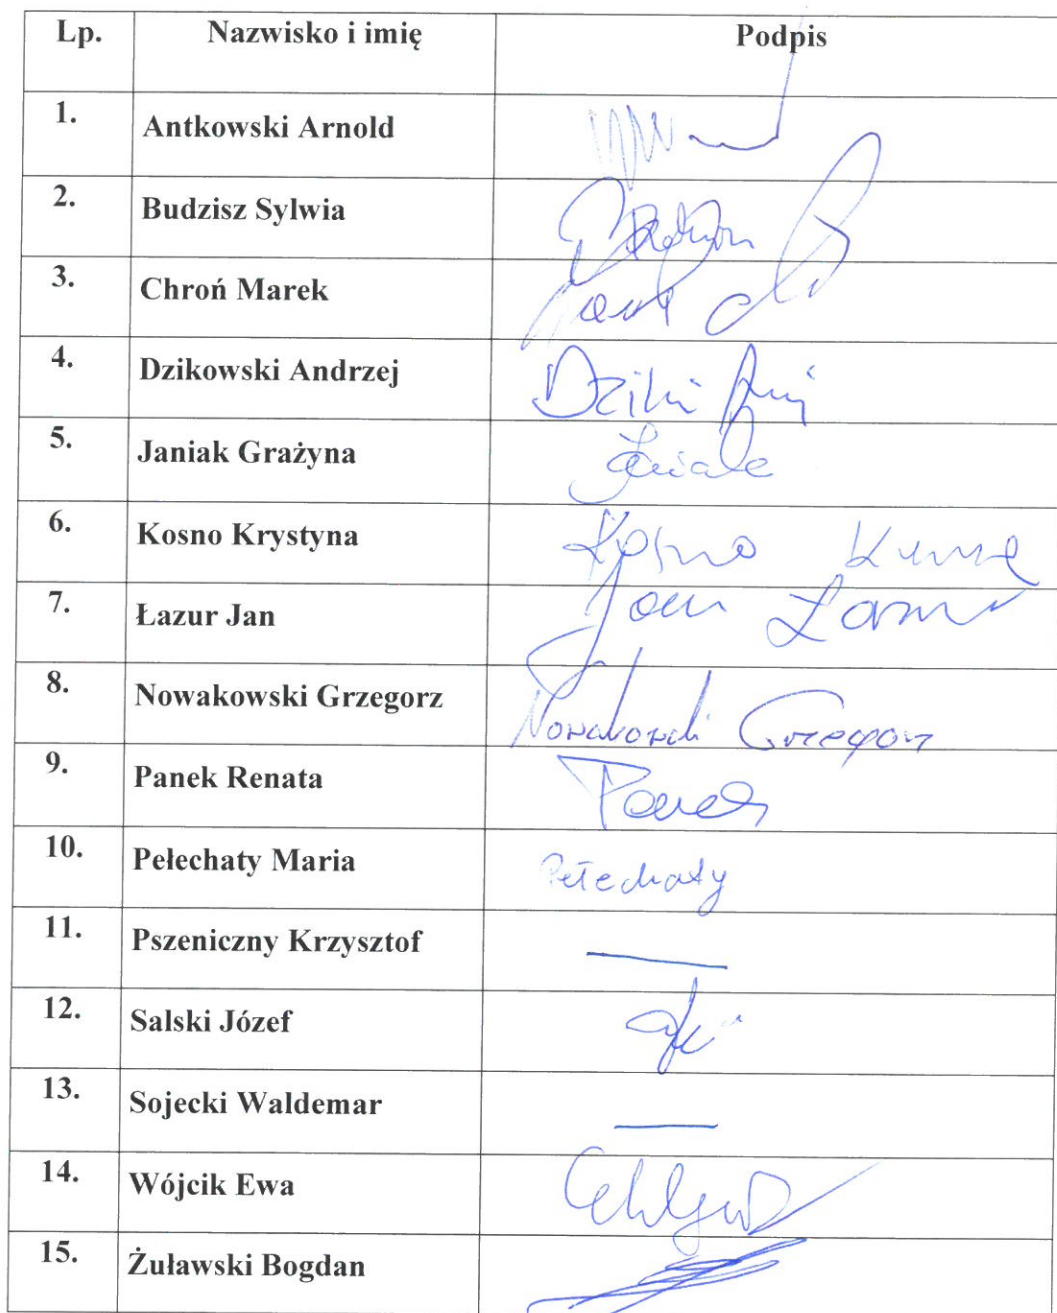 Lp. Nazwisko i imię Podpis
1. Antkowski Arnold
2. Budzisz Sylwia
3. Chroń Marek
4. Dzikowski Andrzej
5. Janiak Grażyna
6. Kosno Krystyna Kosno
7. Łazur Jan Jan Łazur
8. Nowakowski Grzegorz Nowakowski Grzegorz
9. Panek Renata Panek
10. Pełechaty Maria Pełechaty
11. Pszeniczny Krzysztof
12. Salski Józef
13. Sojecki Waldemar
14. Wójcik Ewa
15. Żuławski Bogdan